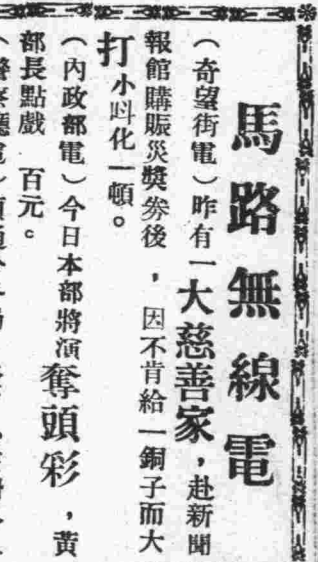 馬路無線電
（奇望街電）昨有一大慈善家，赴新聞
報館購賑災獎劵後，因不肯給一銅子而大
打小叫化一頓。
（內政部電）今日本部將演奪頭彩，黃
部長點戲　百元。